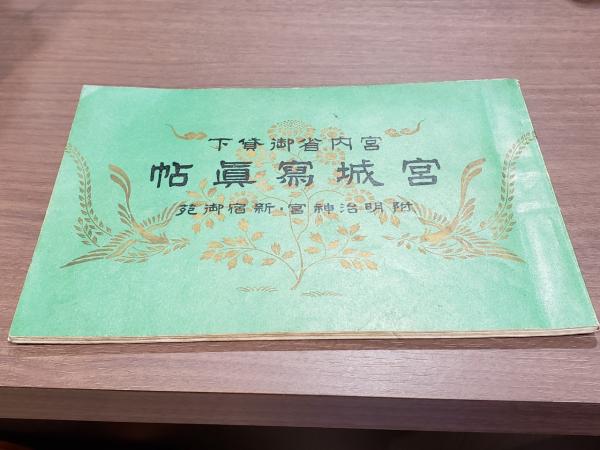 宮内省御貸下
宮城寫眞帖
附明治神宮・新宿御苑